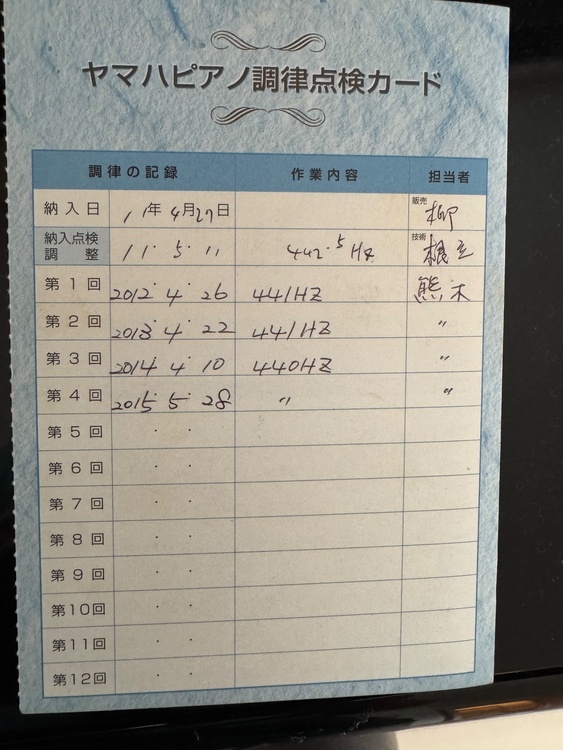 ヤマハピアノ調律点検カード
調律の記録 作業内容 担当者
納入日 11年 4月27日 販売 柳
納入点検調整 11・5・11 442.5Hz 技術
第1回 2012・4・26 441HZ 熊木
第2回 2013・4・22 441HZ 〃
第3回 2014・4・10 440HZ 〃
第4回 2015・5・28 〃 〃
第5回 ・ ・
第6回 ・ ・
第7回 ・ ・
第8回 ・ ・
第9回 ・ ・
第10回 ・ ・
第11回 ・ ・
第12回 ・ ・